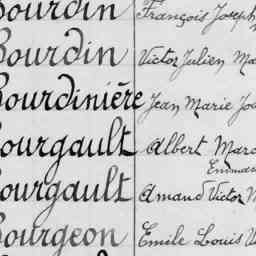 Bourdin François Joseph
Bourdin Victor Julien Ma
Bourdinière Jean Marie Jos
Bourgault Albert Marc
Emman
Bourgault Amand Victor M
Bourgeon Emile Louis V